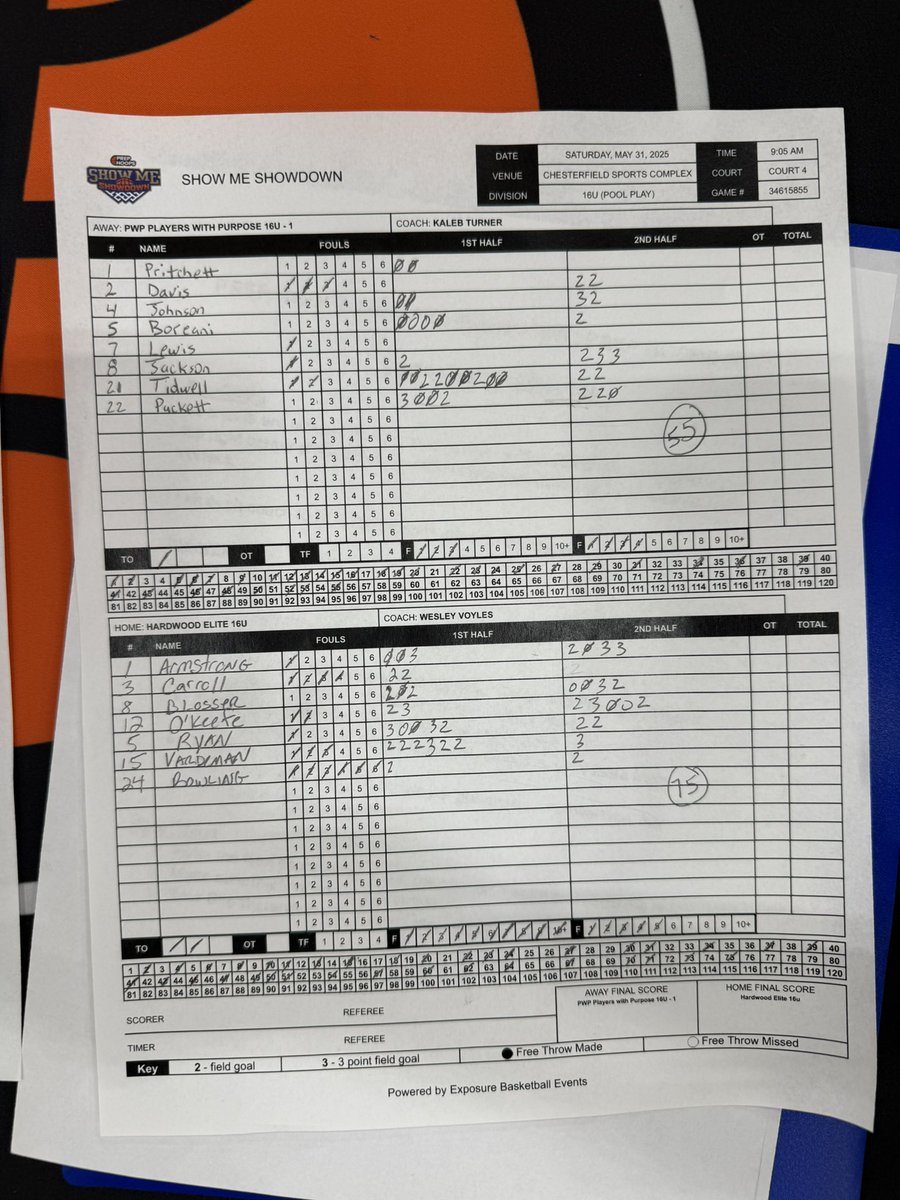 PREP HOOPS
SHOW ME SHOWDOWN
SHOW ME SHOWDOWN
DATE SATURDAY, MAY 31, 2025 TIME 9:05 AM
VENUE CHESTERFIELD SPORTS COMPLEX COURT COURT 4
DIVISION 16U (POOL PLAY) GAME # 34615855
AWAY: PWP PLAYERS WITH PURPOSE 16U - 1 COACH: KALEB TURNER
# NAME FOULS 1ST HALF 2ND HALF OT TOTAL
1 Pritchett 1 2 3 4 5 6
2 Davis 1 2 3 4 5 6 22
4 Johnson 1 2 3 4 5 6 32
5 Boreani 1 2 3 4 5 6 2
7 Lewis 1 2 3 4 5 6
8 Jackson 1 2 3 4 5 6 2 233
21 Tidwell 1 2 3 4 5 6 22
22 Puckett 1 2 3 4 5 6 3002 220
1 2 3 4 5 6
1 2 3 4 5 6
55
1 2 3 4 5 6
1 2 3 4 5 6
1 2 3 4 5 6
1 2 3 4 5 6
1 2 3 4 5 6
TO OT TF 1 2 3 4 F 1 2 3 4 5 6 7 8 9 10+ F 1 2 3 4 5 6 7 8 9 10+
1 2 3 4 5 6 7 8 9 10 11 12 13 14 15 16 17 18 19 20 21 22 23 24 25 26 27 28 29 30 31 32 33 34 35 36 37 38 39 40
41 42 43 44 45 46 47 48 49 50 51 52 53 54 55 56 57 58 59 60 61 62 63 64 65 66 67 68 69 70 71 72 73 74 75 76 77 78 79 80
81 82 83 84 85 86 87 88 89 90 91 92 93 94 95 96 97 98 99 100 101 102 103 104 105 106 107 108 109 110 111 112 113 114 115 116 117 118 119 120
HOME: HARDWOOD ELITE 16U COACH: WESLEY VOYLES
# NAME FOULS 1ST HALF 2ND HALF OT TOTAL
1 ARMSTRONG 1 2 3 4 5 6 003 2033
3 Carroll 1 2 3 4 5 6 22
8 BLOSSER 1 2 3 4 5 6 202 0032
12 O'Keefe 1 2 3 4 5 6 23 23002
5 RYAN 1 2 3 4 5 6 30032 22
15 VARDIMAN 1 2 3 4 5 6 222322 3
24 BOWLING 1 2 3 4 5 6 2 2
1 2 3 4 5 6
75
1 2 3 4 5 6
1 2 3 4 5 6
1 2 3 4 5 6
1 2 3 4 5 6
1 2 3 4 5 6
1 2 3 4 5 6
1 2 3 4 5 6
TO OT TF 1 2 3 4 F 1 2 3 4 5 6 7 8 9 10+ F 1 2 3 4 5 6 7 8 9 10+
1 2 3 4 5 6 7 8 9 10 11 12 13 14 15 16 17 18 19 20 21 22 23 24 25 26 27 28 29 30 31 32 33 34 35 36 37 38 39 40
41 42 43 44 45 46 47 48 49 50 51 52 53 54 55 56 57 58 59 60 61 62 63 64 65 66 67 68 69 70 71 72 73 74 75 76 77 78 79 80
81 82 83 84 85 86 87 88 89 90 91 92 93 94 95 96 97 98 99 100 101 102 103 104 105 106 107 108 109 110 111 112 113 114 115 116 117 118 119 120
SCORER REFEREE
AWAY FINAL SCORE HOME FINAL SCORE
PWP Players with Purpose 16U - 1 Hardwood Elite 16u
TIMER REFEREE
Key 2 - field goal 3 - 3 point field goal Free Throw Made Free Throw Missed
Powered by Exposure Basketball Events